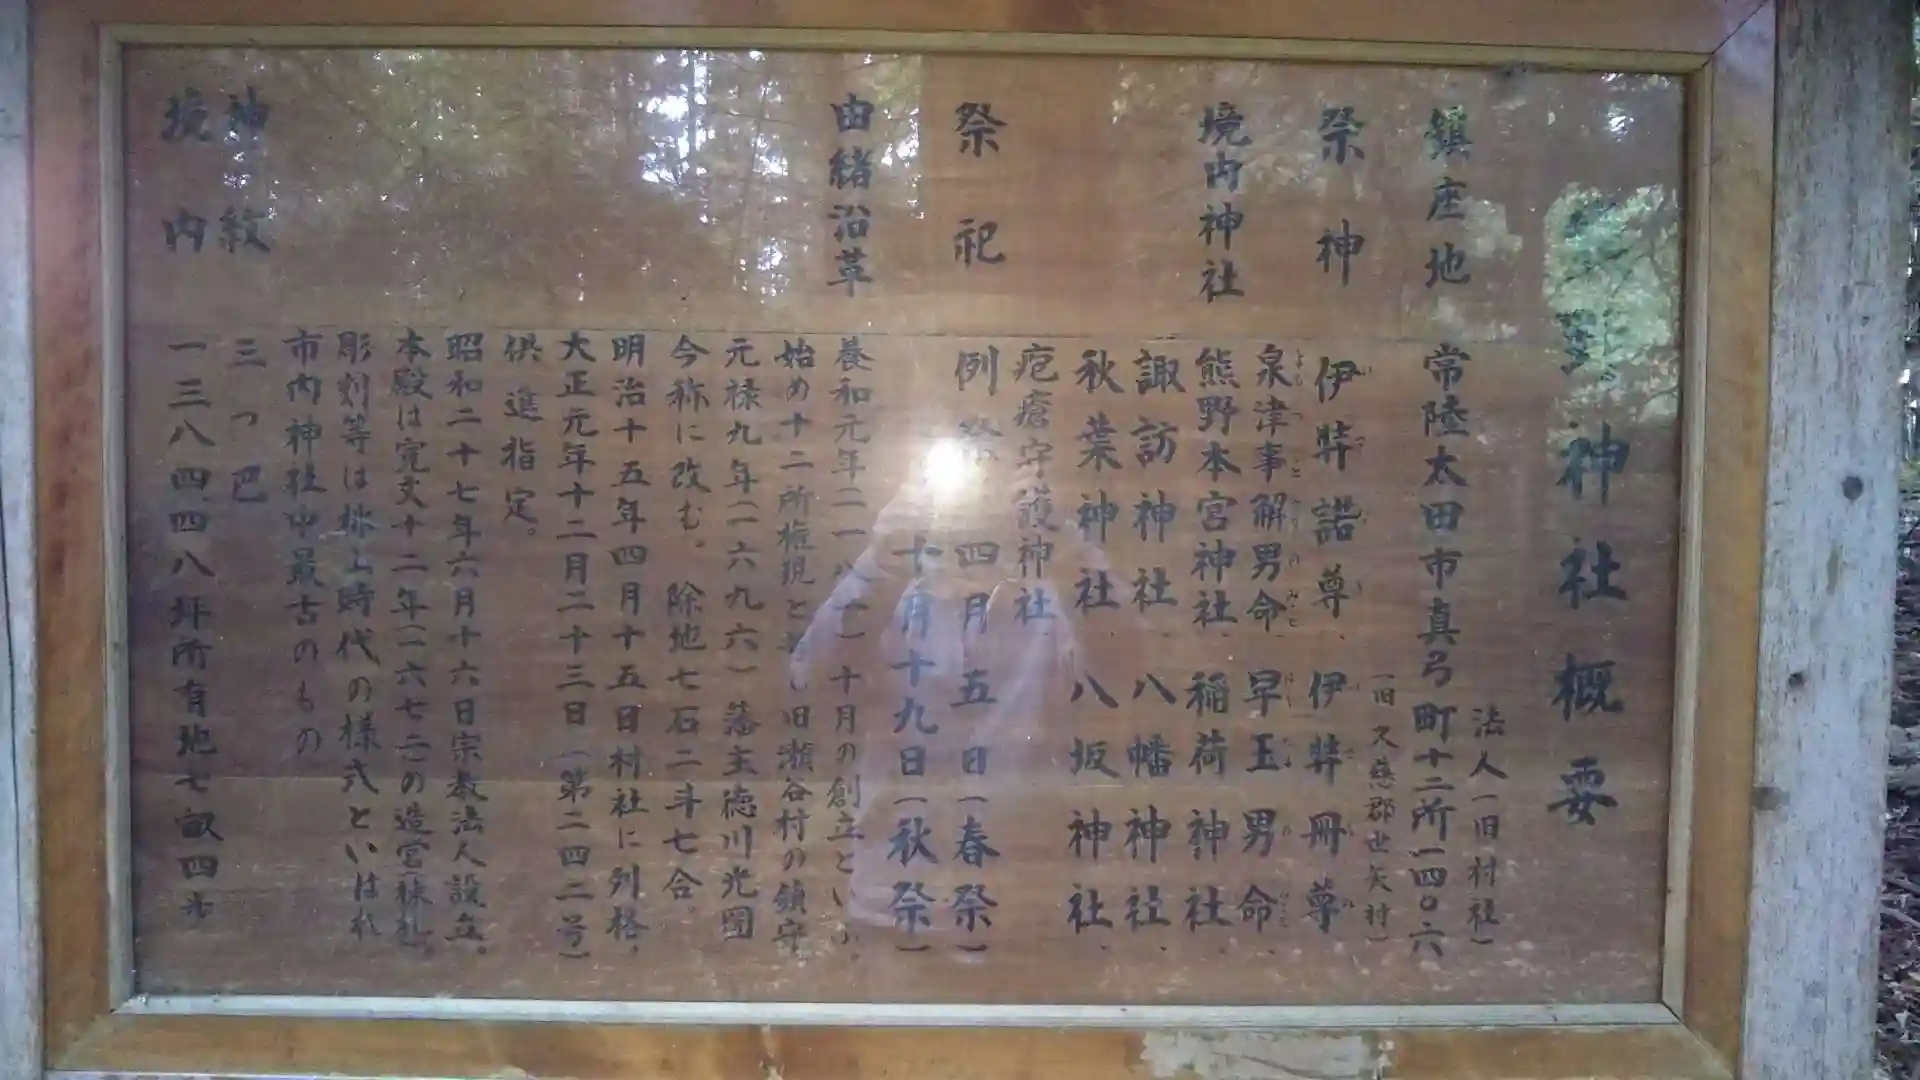 神社概要
法人(旧村社)
鎮座地 常陸太田市真弓町十二所一四〇六
(旧久慈郡世矢村)
祭神 伊弉諾尊、伊弉冊尊
泉津事解男命、早玉男命、
境内神社 熊野本宮神社、稲荷神社、
諏訪神社、八幡神社、
秋葉神社、八坂神社、
疱瘡守護神社
祭祀 例祭 四月五日(春祭)
十月十九日(秋祭)
由緒沿革 養和元年(一一八一)十月の創立といふ。
始め十二所権現と 旧瀬谷村の鎮守
元禄九年(一六九六)藩主徳川光圀
今称に改む。除地七石二斗七合。
明治十五年四月十五日村社に列格、
大正元年十二月二十三日(第二四二号)
供進指定。
昭和二十七年六月十六日宗教法人設立。
本殿は寛文十二年(一六七二)の造営(棟札)。
彫刻等は桃山時代の様式といはれ
市内神社中最古のもの
神紋 三つ巴
境内 一三八四四八坪所有地七